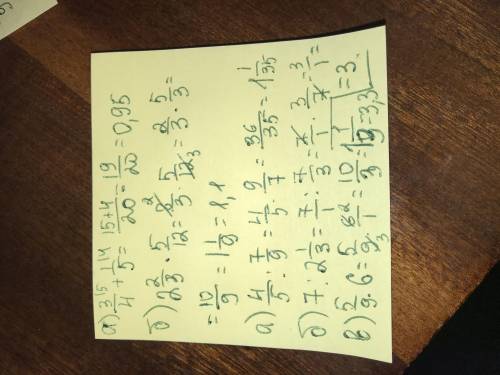 а) 3/4 + 1/5 = (15+4)/20 = 19/20 = 0,95
б) 2 2/3 · 5/12 = 8/3 · 5/12 = 2/3 · 5/3 =
= 10/9 = 1 1/9 = 1,1
а) 4/5 : 7/9 = 4/5 · 9/7 = 36/35 = 1 1/35
б) 7 : 2 1/3 = 7/1 : 7/3 = 7/1 · 3/7 = 3/1 =
= 3.
в) 5/9 · 6 = 5/9 · 6/1 = 10/3 =